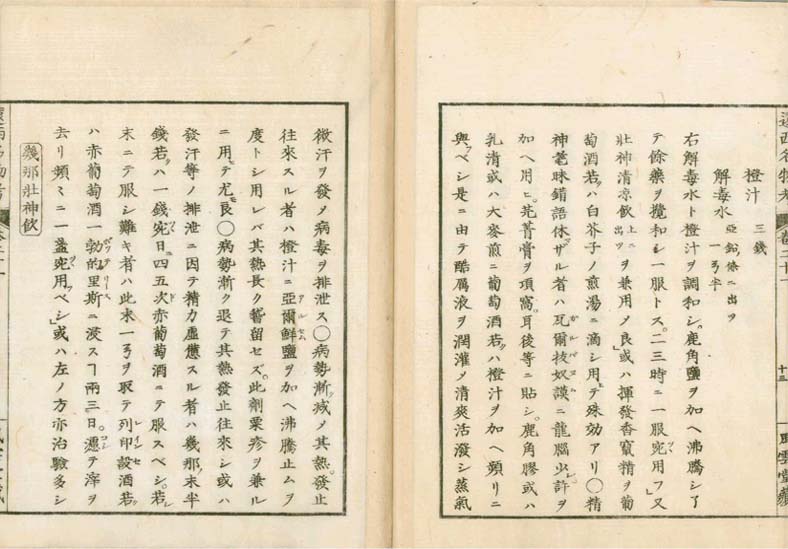 遠西名物考 巻二十二
十三 風雲堂蔵
橙汁 三銭
解毒水 亜鉛條ニ出ヅ 一弓半
右解毒水ト橙汁ヲ調和シ。鹿角鹽ヲ加ヘ沸騰シ了
テ餘藥ヲ攪和シ一服トス。二三時ニ一服宛用フ又
壯神清凉飲上ニ出ツヲ兼用メ良」或ハ揮發香竄精ヲ葡
萄酒若クハ白芥子ノ煎湯ニ滴シ用ヒテ殊効アリ〇精
神耄昧錯語休ザル者ハ瓦爾抜奴謨ニ龍腦少許ヲ
加ヘ用ヒ。芫菁膏ヲ項窩。耳後等ニ貼シ。鹿角膠或ハ
乳清或ハ大麥煎ニ葡萄酒若クハ橙汁ヲ加ヘ頻リニ
與フベシ是ニ由テ酷厲液ヲ潤灌メ清爽活潑シ蒸氣
微汗ヲ發メ病毒ヲ排泄ス〇病勢漸ク減メ其熱。發止
往來スル者ハ橙汁ニ亞爾鮮鹽ヲ加ヘ沸騰止ムヲ
度トシ用レバ其熱長ク稽留セズ。此劑粟疹ヲ兼ル
ニ用ヒテ尤モ良〇病勢漸ク退テ其熱發止往來シ或ハ
發汗等ノ排泄ニ因テ精力虛憊スル者ハ幾那末半
錢若クハ一錢宛日ニ四五次赤葡萄酒ニテ服スベシ。若シ
末ニテ服シ難キ者ハ此末一弓ヲ取テ列印設酒若ク
ハ赤葡萄酒一勃的里斯ニ浸スヿ兩三日。濾テ滓ヲ
去リ頻々ニ一盞宛用フベシ」或ハ左ノ方亦治驗多シ
幾那壯神飲